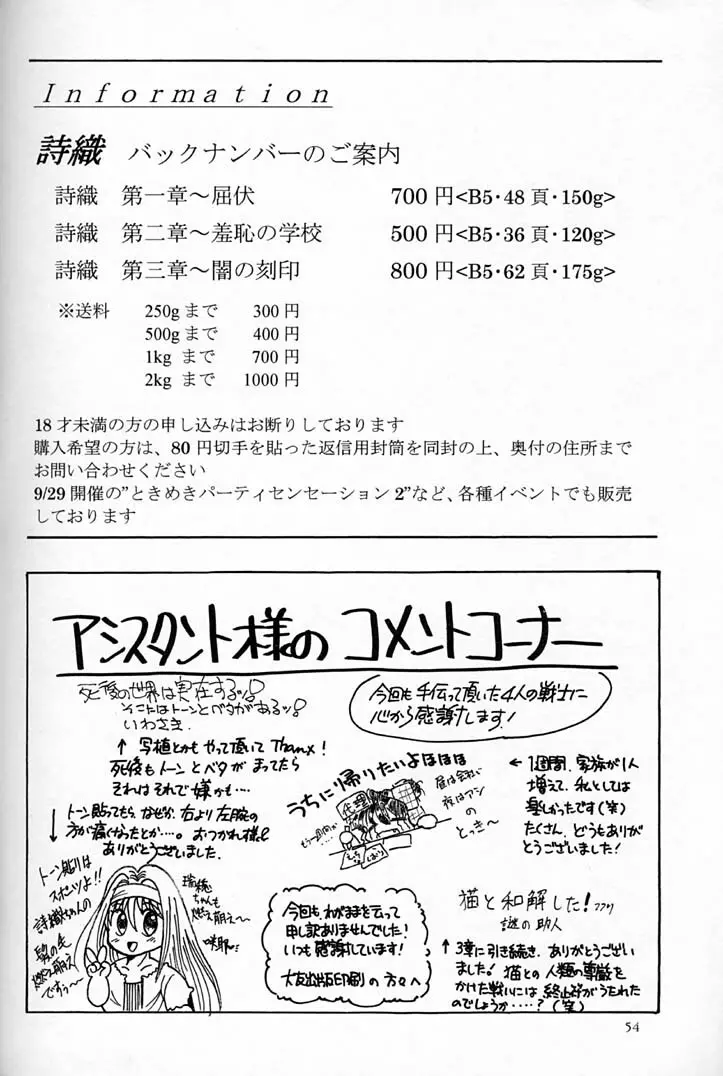 Information
詩織 バックナンバーのご案内
詩織 第一章～屈伏 700 円<B5・48 頁・150g>
詩織 第二章～羞恥の学校 500 円<B5・36 頁・120g>
詩織 第三章～闇の刻印 800 円<B5・62 頁・175g>
※送料 250g まで 300 円
500g まで 400 円
1kg まで 700 円
2kg まで 1000 円
18 才未満の方の申し込みはお断りしております
購入希望の方は、80 円切手を貼った返信用封筒を同封の上、奥付の住所まで
お問い合わせください
9/29 開催の"ときめきパーティセンセーション 2"など、各種イベントでも販売
しております
アシスタント様の コメントコーナー
死後の世界は実在するッ!
そこにはトーンとベタがあるッ!
いわさき
↑ 写植とかも やって頂いて Thanx!
死後も トーンと ベタ が まってたら
それは それで 嫌かも…
今回も 手伝って頂いた 4人の戦士に
心から感謝します!
うちに帰りたいよほほほ
昼は会社い
夜はアシ
の
とっき～
← 1週間、家族が1人
増えて、私としては
楽しかったです(笑)
たくさん、どうもありが
とうございました!
↓ トーン貼ってもら、なぜか、右より 左腕の
方が痛くなったとか…。おつかれ様&
ありがとうございました.
トーン貼りは
スポーツよ!!
詩織ちゃんの
髪の毛
燃え萌え
ですぅ～
瑞穂
ちゃんも
燃え萌え～
咲耶
今回も、わがままを云って
申し訳ありませんでした!
いつも感謝しています!
大友出版印刷 の 方々へ
猫と和解した!フフリ
謎の助人
↑ 3章に引き続き、ありがとうござい
ました! 猫との 人類の尊厳を
かけた戦いには 終止符がうたれた
のでしょうか……? (笑)
54